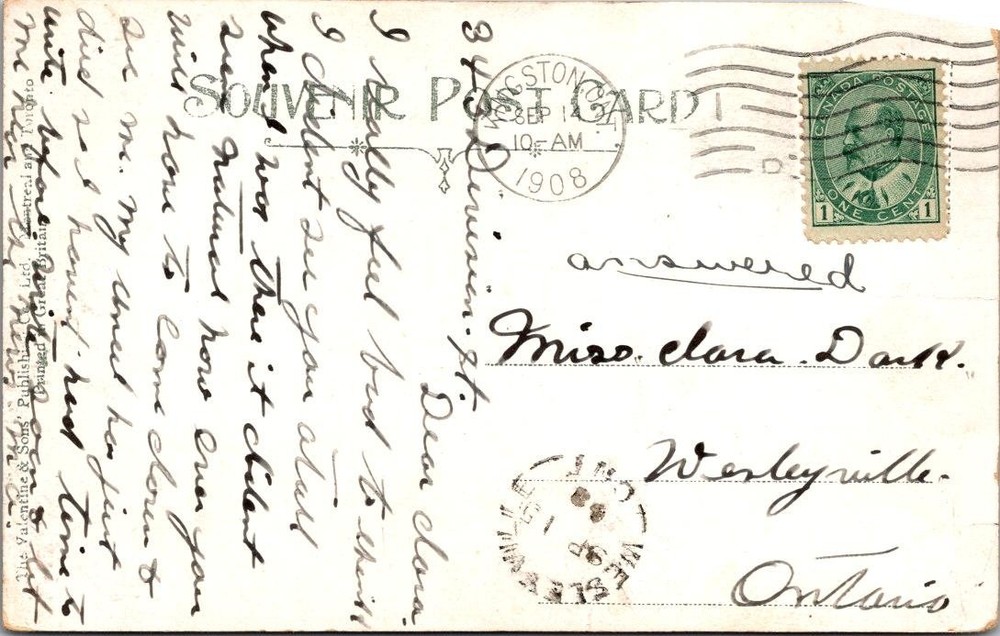 SOUVENIR POST CARD
KINGSTON, CAN.
SEP 14
10-AM
1908
CANADA POSTAGE
ONE CENT
1 1
answered
Miss. Clara. Dark.
Wesleyville.
Ontario
WESLEYVILLE
ONT
34 Division. St.
Dear Clara.
I really feel bad to think
I did'nt see you atall
when I was there it did'nt
seem natural now ever you
will have to come down to
see me. My uncle has just
died so I havent had time to
write before write soon & lot
The Valentine & Sons' Publishing Co. Ltd. Montreal and Toronto
Printed in Great Britain